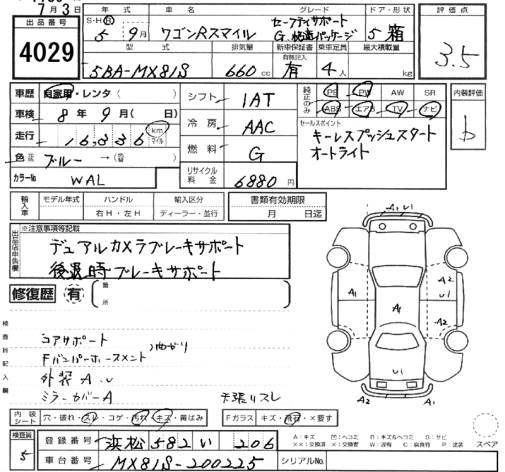 7月3日
出品番号
4029
S・H・R 年式 5年 9月
ワゴンRスマイル
グレード セーフティサポート
G.快適パッケージ
ドア・形状 5 箱
評価点 3.5
型式 5BA-MX81S
排気量 660cc
新車保証書 有無記入 有
乗車定員 4人
最大積載量 kg
車歴 自家用・レンタ( )
車検 8年 9月( 日)
走行 16,336 km マイル
色 ブルー →( )
カラーNo WAL
シフト 1AT
冷房 AAC
燃料 G
リサイクル料金 6880円
純正のみ PS PW AW SR
ABS エアB TV ナビ
セールスポイント
キーレスプッシュスタート
オートライト
内装評価 b
輸入車 モデル年式 年 ハンドル 右H・左H 輸入区分 ディーラー・並行
書類有効期限 月 日迄
出品店申告欄
※注意事項等記載
デュアルカメラブレーキサポート
後退時ブレーキサポート
修復歴 有 箇所
検査員記入欄
コアサポート
Fバンパーホースメント
外装 A.U
ミラーカバーA
内装シート 穴・破れ・スレ・コゲ・汚れ・キズ・菌ばみ
Fガラス キズ・飛石・×要す
検査員 5
登録番号 浜松 582 い 206
車台番号 MX81S-200225
シリアルNo.
A:キズ U:ヘコミ B:キズ&ヘコミ S:サビ
X:交換 XX:交換済 W:波有 C:腐食有 P:塗装
スペア
A.U1
A1
A1
A2
U1
A2